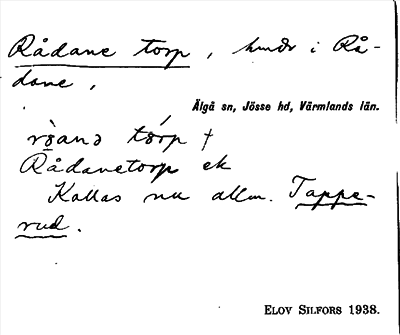 Rådane torp, hmdr i Rå-
dane,
Älgå sn, Jösse hd, Värmlands län.
Rådanetorp ek
Kallas nu allm. Tappe-
rud.
ELOV SILFORS 1938.